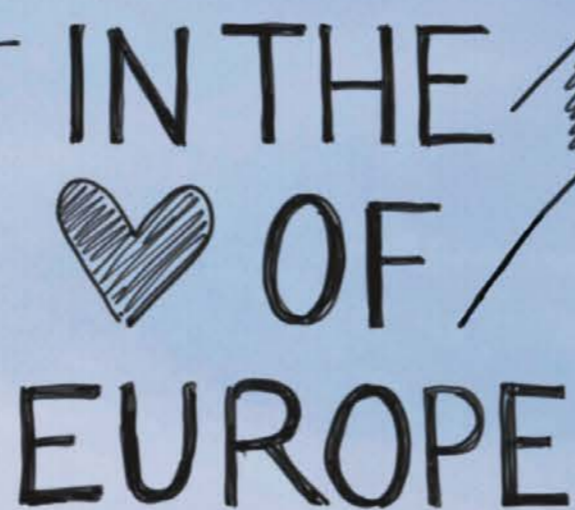 IN THE
♥ OF
EUROPE